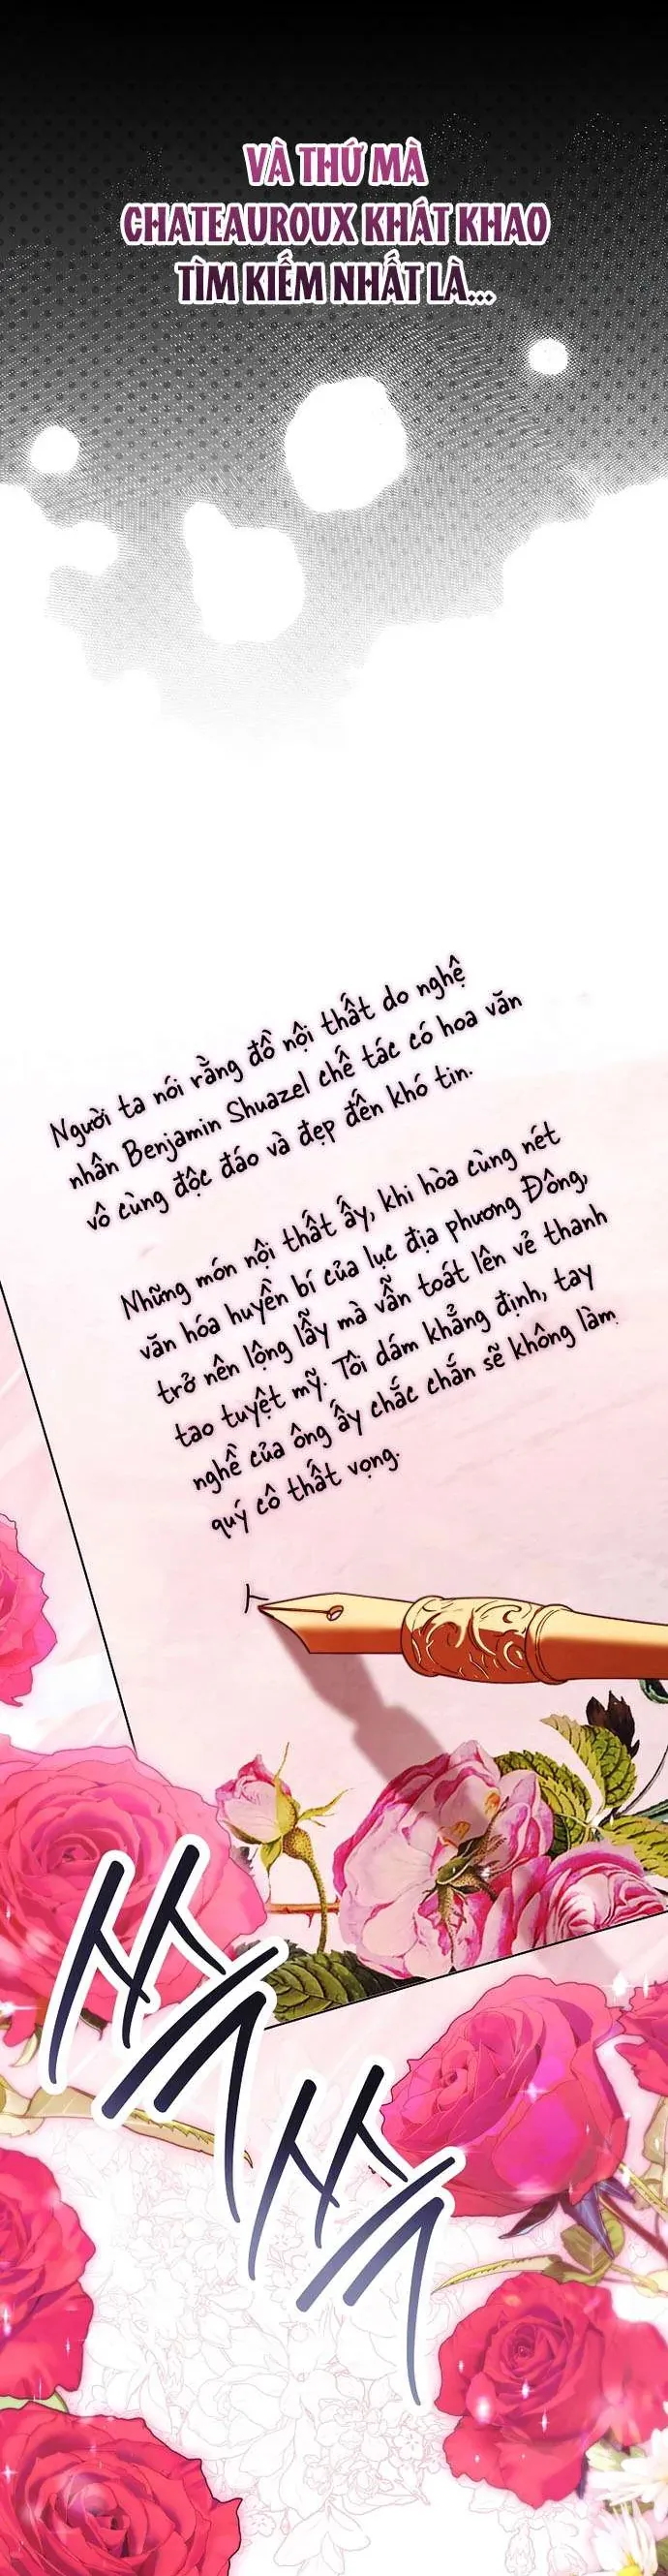 VÀ THỨ MÀ
CHATEAUROUX KHÁT KHAO
TÌM KIẾM NHẤT LÀ...
Người ta nói rằng đồ nội thất do nghệ
nhân Benjamin Shuazel chế tác có hoa văn
vô cùng độc đáo và đẹp đến khó tin.
Những món nội thất ấy, khi hòa cùng nét
văn hóa huyền bí của lục địa phương Đông,
trở nên lộng lẫy mà vẫn toát lên vẻ thanh
tao tuyệt mỹ. Tôi dám khẳng định, tay
nghề của ông ấy chắc chắn sẽ không làm
quý cô thất vọng.
쓱쓱